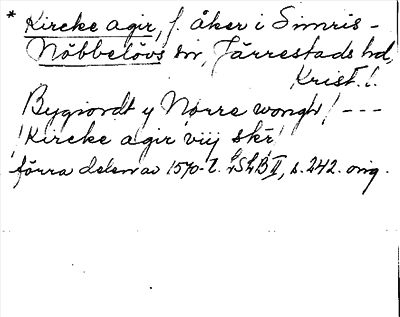 * Kircke agir, f. åker i Simris-
Nöbbelövs sn, Järrestads hd,
Krist. l.
Bygiordt y Norre wongh / ---
/ Kircke agir viij skr /
förra delen av 1570-t. LSLB II, s. 242. orig.